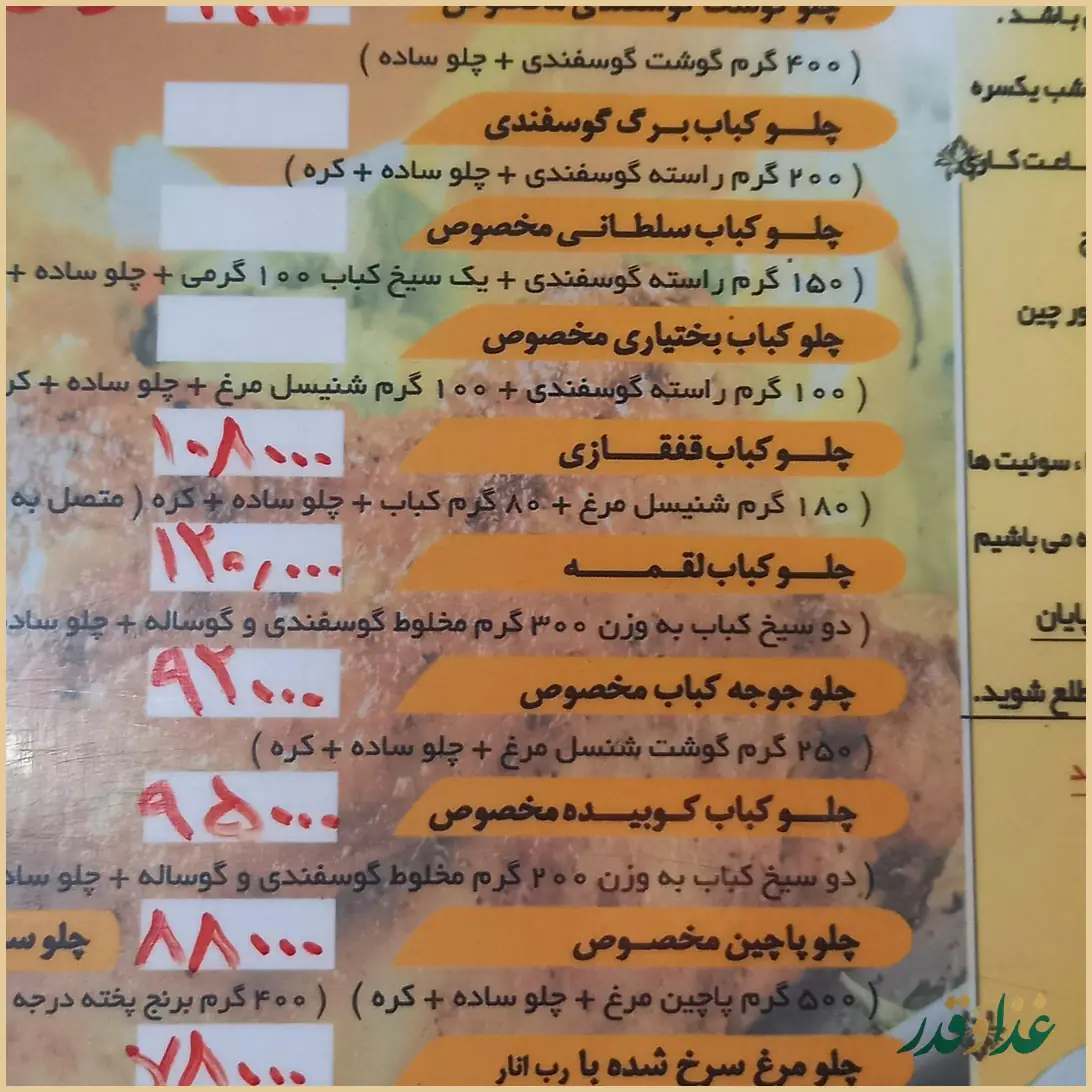 چلو گوشت گوسفندی مخصوص
( ۴۰۰ گرم گوشت گوسفندی + چلو ساده )
چلو کباب برگ گوسفندی
( ۲۰۰ گرم راسته گوسفندی + چلو ساده + کره )
چلو کباب سلطانی مخصوص
( ۱۵۰ گرم راسته گوسفندی + یک سیخ کباب ۱۰۰ گرمی + چلو ساده +
چلو کباب بختیاری مخصوص
( ۱۰۰ گرم راسته گوسفندی + ۱۰۰ گرم شنیسل مرغ + چلو ساده + کر
چلو کباب قفقازی ۱۰۸۰۰۰
( ۱۸۰ گرم شنیسل مرغ + ۸۰ گرم کباب + چلو ساده + کره ( متصل به
چلو کباب لقمه ۱۲۰,۰۰۰
( دو سیخ کباب به وزن ۳۰۰ گرم مخلوط گوسفندی و گوساله + چلو ساد
چلو جوجه کباب مخصوص ۹۲۰۰۰
( ۲۵۰ گرم گوشت شنسل مرغ + چلو ساده + کره )
چلو کباب کوبیده مخصوص ۹۵۰۰۰
( دو سیخ کباب به وزن ۲۰۰ گرم مخلوط گوسفندی و گوساله + چلو ساد
چلو پاچین مخصوص ۸۸۰۰۰
( ۵۰۰ گرم پاچین مرغ + چلو ساده + کره )
چلو مرغ سرخ شده با رب انار ۷۸۰۰۰
چلو س
( ۴۰۰ گرم برنج پخته درجه
باشد.
شب یکسره
ساعت کاری
ور چین
، سوئیت ها
ه می باشیم
پایان
طلع شوید.
غذا قدر